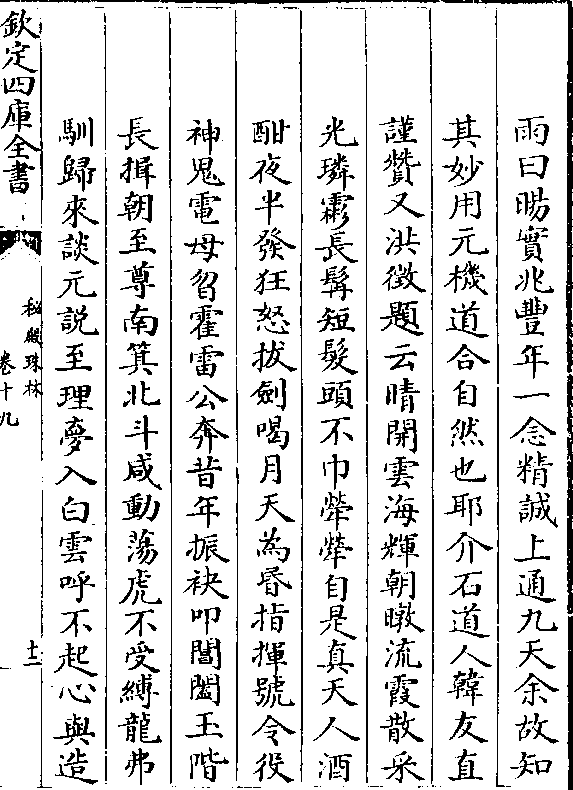 雨曰暘實兆豐年一念精誠上通九天余故知
其妙用元機道合自然也耶介石道人韓友直
謹贊又洪徴題云晴開雲海輝朝暾流霞散采
光璘霦長髯短髮頭不巾犖犖自是真天人酒
酣夜半發狂怒拔劍喝月天為昏指揮號令役
神鬼電母習霍雷公奔昔年振袂叩閶闔玉階
長揖朝至尊南箕北斗咸動蕩虎不受縛龍弗
馴歸來談元説至理夢入白雲呼不起心與造
欽定四庫全書
秘殿珠林
卷十九
十二